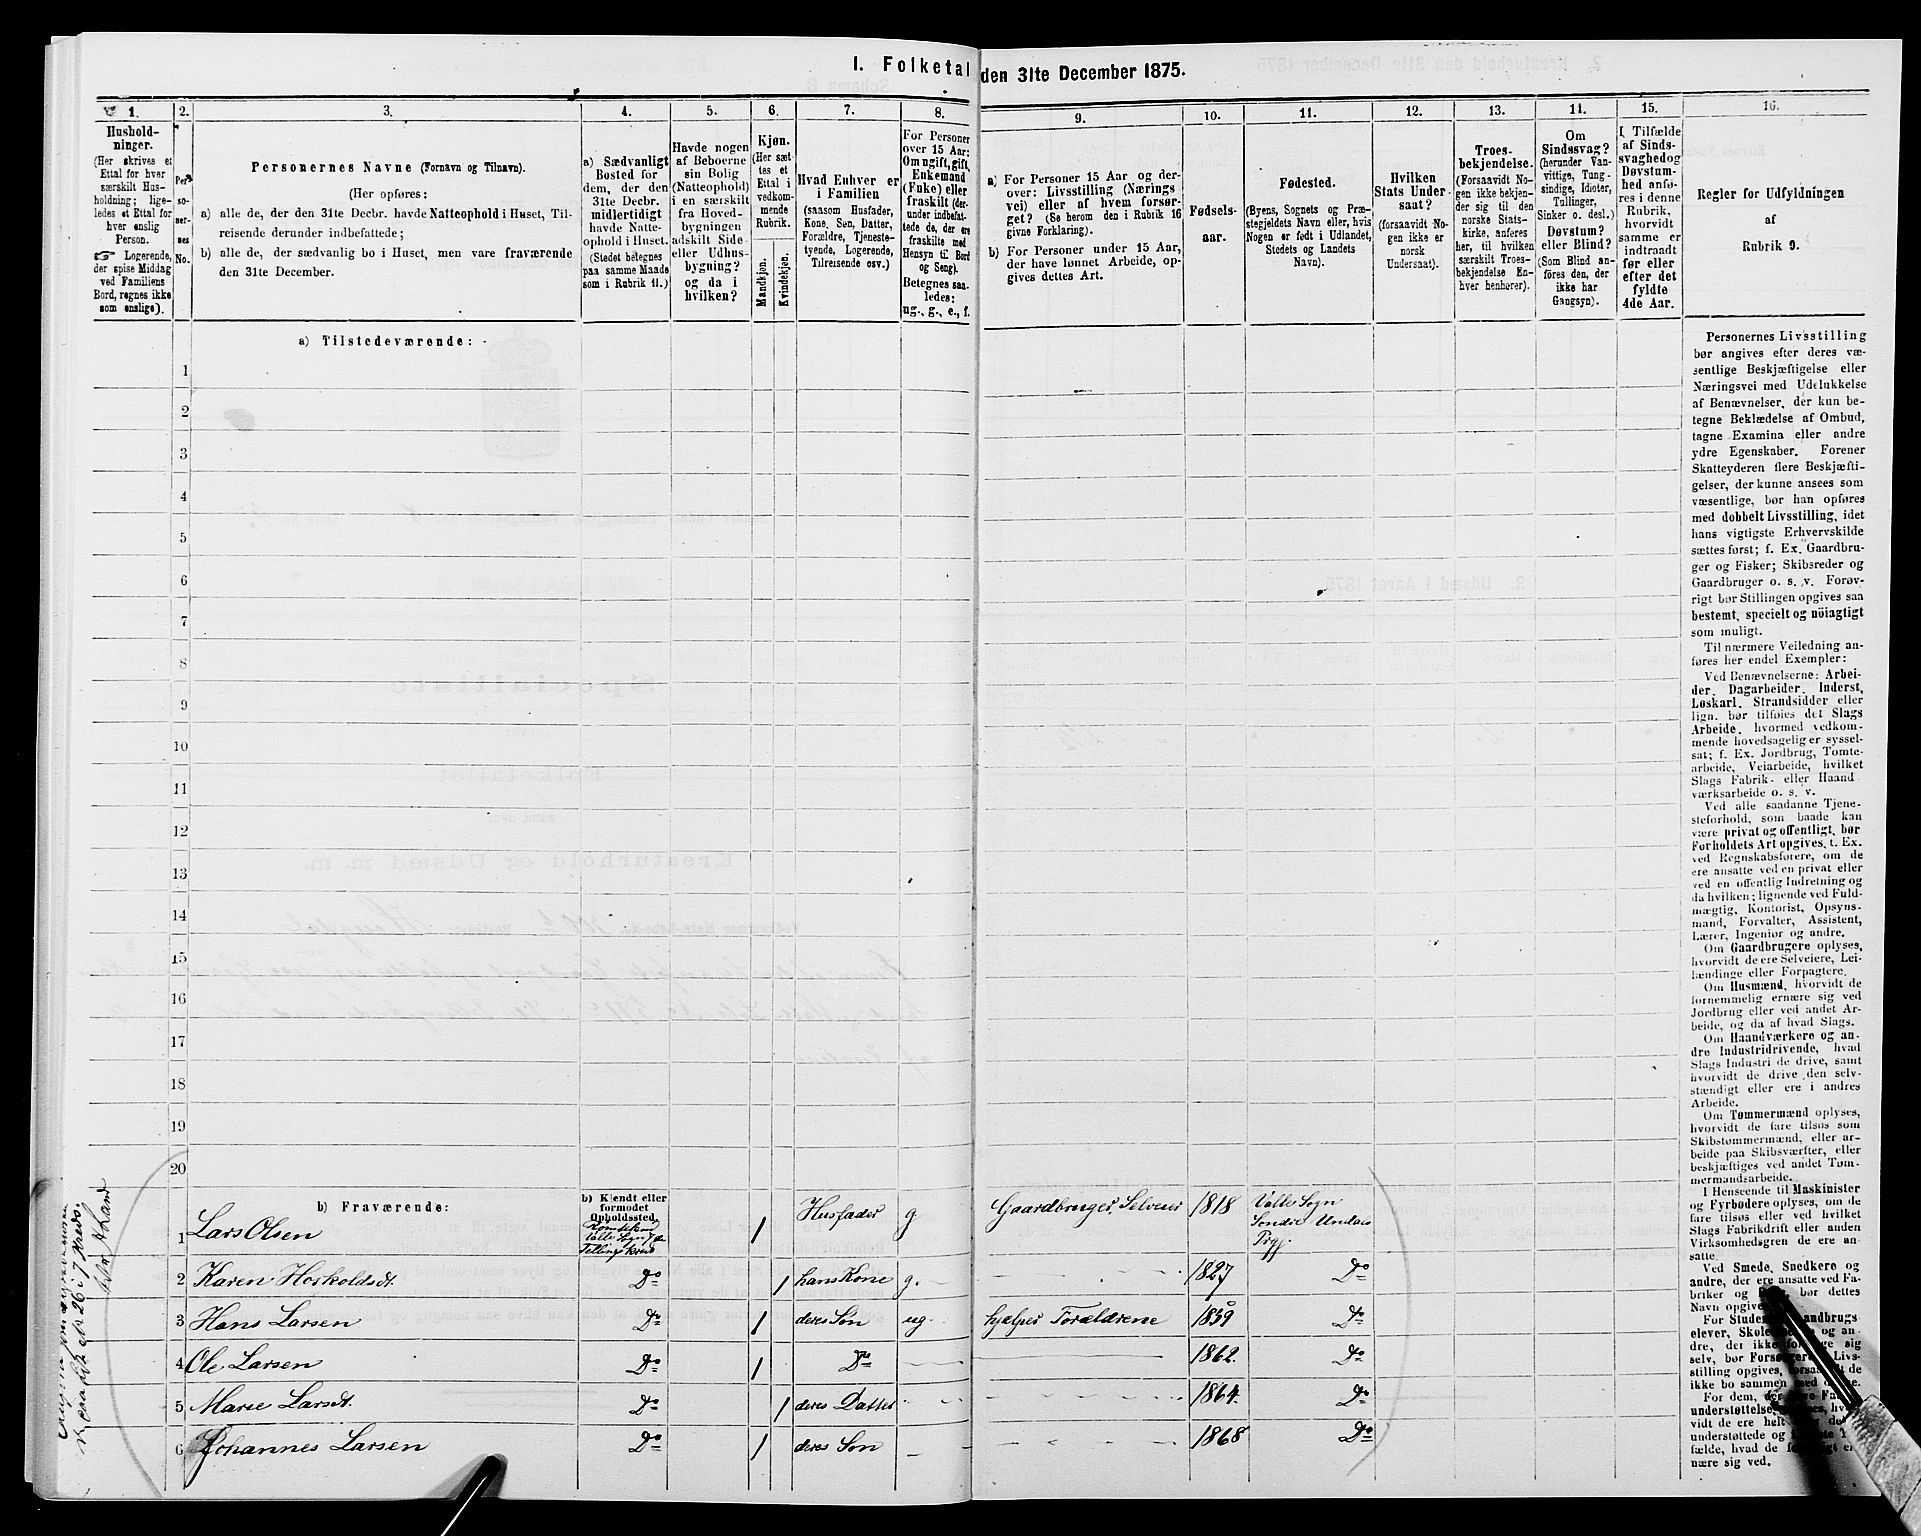 1. Folketal den 31te December 1875.
1.
Hushold-
ninger.
(Her skrives et
Ettal for hver
særskilt Hus-
holdning; lige-
ledes et Ettal for
hver enslig
Person.
☞ Logerende,
der spise Middag
ved Familiens
Bord, regnes ikke
som enslige).
2.
Per-
so-
ner-
nes
No.
3.
Personernes Navne (Fornavn og Tilnavn).
(Her opføres:
a) alle de, der den 31te Decbr. havde Natteophold i Huset, Til-
reisende derunder indbefattede;
b) alle de, der sædvanlig bo i Huset, men vare fraværende
den 31te December.
4.
a) Sædvanligt
Bosted for
dem, der den
31te Decbr.
midlertidigt
havde Natte-
ophold i Huset.
(Stedet betegnes
paa samme Maade
som i Rubrik 11.)
5.
Havde nogen
af Beboerne
sin Bolig
(Natteophold)
i en særskilt
fra Hoved-
bygningen
adskilt Side-
eller Udhus-
bygning?
og da i
hvilken?
6.
Kjøn.
(Her sæt-
tes et
Ettal i
vedkom-
mende
Rubrik.
Mandkjøn.
Kvindekjøn.
7.
Hvad Enhver er
i Familien
(saasom Husfader,
Kone, Søn, Datter,
Forældre, Tjeneste-
tyende, Logerende,
Tilreisende osv.)
8.
For Personer
over 15 Aar:
Om ugift, gift,
Enkemand
(Enke) eller
fraskilt (der-
under indbefat-
tede de, der ere
fraskilte med
Hensyn til Bord
og Seng).
Betegnes saa-
ledes:
ug., g., e., f.
9.
a) For Personer 15 Aar og der-
over: Livsstilling (Nærings
vei) eller af hvem forsør-
get? (Se herom den i Rubrik 16
givne Forklaring).
b) For Personer under 15 Aar,
der have lønnet Arbeide, op-
gives dettes Art.
10.
Fødsels-
aar.
11.
Fødested.
(Byens, Sognets og Præ-
stegjeldets Navn eller, hvis
Nogen er født i Udlandet,
Stedets og Landets
Navn).
12.
Hvilken
Stats Under-
saat?
(forsaavidt No-
gen ikke er
norsk
Undersaat).
13.
Troes-
bekjendelse.
(Forsaavidt No-
gen ikke bekjen-
der sig til den
norske Stats-
kirke, anføres
her, til hvilken
særskilt Troes-
bekjendelse En-
hver henhører).
14.
Om
Sindssvag?
(herunder Van-
vittige, Tung-
sindige, Idioter,
Tullinger,
Sinker o. desl.)
Døvstum?
eller Blind?
(Som Blind an-
føres den, der
ikke har
Gangsyn).
15.
I Tilfælde
af Sinds-
svaghed og
Døvstum-
hed anfø-
res i denne
Rubrik,
hvorvidt
samme er
indtraadt
før eller
efter det
fyldte
4de Aar.
16.
Regler for Udfyldningen
af
Rubrik 9.
a) Tilstedeværende:
1
2
3
4
5
6
7
8
9
10
11
12
13
14
15
16
17
18
19
20
b) Fraværende:
b) Kjendt eller
formodet
Opholdssted.
1 Lars Olsen
Valle Sogn
1 Husfader g Gaardbruger, Selveier 1818 Valle Sogn
Søndre Undals
Prgj.
2 Karen Hoskoldsdt. Do 1 hans Kone g. 1827 Do
3 Hans Larsen Do 1 deres Søn ug. hjælper Forældrene 1859 Do
4 Ole Larsen Do 1 Do 1862. Do
5 Marie Larsdt. Do 1 deres Datter 1864. Do
6 Johannes Larsen Do 1 deres Søn 1868 Do
Personernes Livsstilling
bør angives efter deres væ-
sentlige Beskjæftigelse eller
Næringsvei med Udelukkelse
af Benævnelser, der kun be-
tegne Beklædelse af Ombud,
tagne Examina eller andre
ydre Egenskaber. Forener
Skatteyderen flere Beskjæfti-
gelser, der kunne ansees som
væsentlige, bør han opføres
med dobbelt Livsstilling, idet
hans vigtigste Erhvervskilde
sættes først; f. Ex. Gaardbru-
ger og Fisker; Skibsreder og
Gaardbruger o. s. v. Forøv-
rigt bør Stillingen opgives saa
bestemt, specielt og nöiagtigt
som muligt.
Til nærmere Veiledning an-
føres her endel Exempler:
Ved Benævnelserne: Arbei-
der, Dagarbeider, Inderst,
Løskarl, Strandsidder eller
lign. bør tilføies det Slags
Arbeide, hvormed vedkom-
mende hovedsagelig er syssel-
sat; f. Ex. Jordbrug, Tomte-
arbeide, Veiarbeide, hvilket
Slags Fabrik- eller Haand-
værksarbeide o. s. v.
Ved alle saadanne Tjene-
steforhold, som baade kan
være privat og offentligt, bør
Forholdets Art opgives, t. Ex.
ved Regnskabsførere, om de
ere ansatte ved en privat eller
ved en offentlig Indretning og
da hvilken; lignende ved Fuld-
mægtig, Kontorist, Opsyns-
mand, Forvalter, Assistent,
Lærer, Ingeniør og andre.
Om Gaardbrugere oplyses,
hvorvidt de ere Selveiere, Lei-
lændinge eller Forpagtere.
Om Husmænd, hvorvidt de
fornemmelig ernære sig ved
Jordbrug eller ved andet Ar-
beide, og da af hvad Slags.
Om Haandværkere og an-
dre Industridrivende, hvad
Slags Industri de drive, samt
hvorvidt de drive den selv-
stændigt eller ere i andres
Arbeide.
Om Tømmermænd oplyses,
hvorvidt de fare tilsøs som
Skibstømmermænd, eller ar-
beide paa Skibsværfter, eller
beskjæftiges ved andet Tøm-
mermandsarbeide.
I Henseende til Maskinister
og Fyrbødere oplyses, om de
fare tilsøs eller ved hvilket
Slags Fabrikdrift eller anden
Virksomhedsgren de ere an-
satte.
Ved Smede, Snedkere og
andre, der ere ansatte ved Fa-
briker og bør dettes
Navn opgives
For
elever, og an-
dre, der ikke sig
selv, bør Livs-
stilling opgives,
ikke bo sammen med
For dem, der
understøttelse, hvor-
vidt de ere helt
understøttede og
fælde, hvad de
nære sig ved.